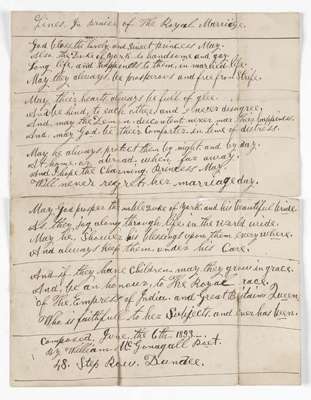 Lines, In praise of The Royal Marriage.
God bless the lovely, and sweet Princess May,
Also, The Duke of York, so handsome and gay,
Long life, and happiness to them, in married life.
May they always, be prosperous and free from strife.
May, their hearts always be full of glee.
And be kind, to each other, and never disagree,
And, may the demon, discontent never mar their happiness.
And, may God be, their Comforter, in time of distress.
May he always protect them by night and by day.
At home, or abroad, when far away.
And I hope the Charming, Princess May,
Will never regret her marriage day.
May God prosper the noble Duke of York, and his beautiful bride.
As they jog along, through life, in the world wide.
May he, Shower his blessings upon them everywhere.
And always keep them, under his Care.
And if they have Children, may they grow in grace.
And, be an honour, to The Royal race.
Of The Empress of India, and Great Britain's Queen,
Who is faithfull to her Subjects, and ever has been.
Composed, June, the 6th 1893
By William McGonagall Poet.
48, Step Row, Dundee.